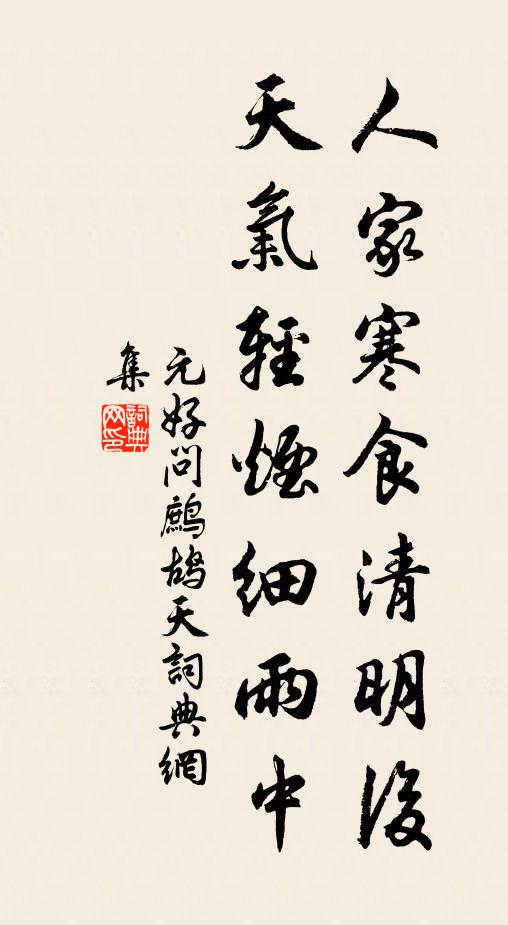 人家寒食清明後
天氣輕煙細雨中
元好問鷓鴣天詞典網
集
詞典網印